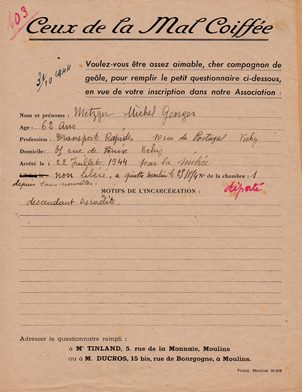 403
Ceux de la Mal Coiffée
3/10 1944
Voulez-vous être assez aimable, cher compagnon de
geôle, pour remplir le petit questionnaire ci-dessous,
en vue de votre inscription dans notre Association :
Nom et prénoms : Metzger Michel Georges
Age : 62 ans
Profession : Transport Rapides 10 rue de Portugal Vichy
Domicile : 35 rue de Venise Vichy
Arrêté le : 22 Juillet 1944 par la milice
non libéré, a quitté moulins le 25/8/4 Nº de la chambre : 1
depuis sans nouvelles.
MOTIFS DE L'INCARCÉRATION :
déporté
descendant israélite
Adresser le questionnaire rempli :
à Mᵉ TINLAND, 5, rue de la Monnaie, Moulins
ou à M. DUCROS, 15 bis, rue de Bourgogne, à Moulins.
Moulins